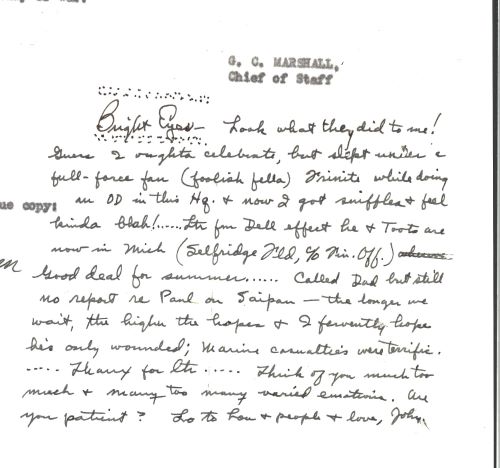 G. C. MARSHALL,
Chief of Staff
Bright Eyes — Look what they did to me!
Guess I oughta celebrate, but slept under a
full-force fan (foolish fella) while doing
an OD in this Hq. & now I got sniffles & feel
ue copy:
kinda blah!..... Ltr fm Dell effect he & Toots are
now in Mich (Selfridge Fld, c/o Fin. Off.)
Good deal for summer..... Called Dad but still
no report re Paul on Saipan — the longer we
wait, the higher the hopes & I fervently hope
he's only wounded; Marine casualties were terrific.
..... Thanx for ltr ..... Think of you much too
much & many too many varied emotions. Are
you patient? Lo to Lou & people & love, John.